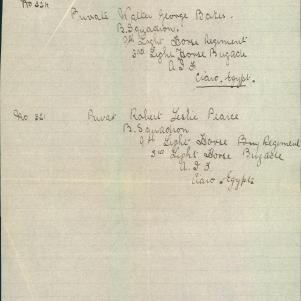 No 324
Private Walter George Bates.
B. Squadron.
9th Light Horse Regiment
3rd Light Horse Brigade
A. I. F
Ciaro. Egypt.
No 331 Privat Robert Leslie Pearce
B. Squadron
9th Light Horse Regiment
3rd Light Horse Brigade
A. I. F
Ciaro. Egypt